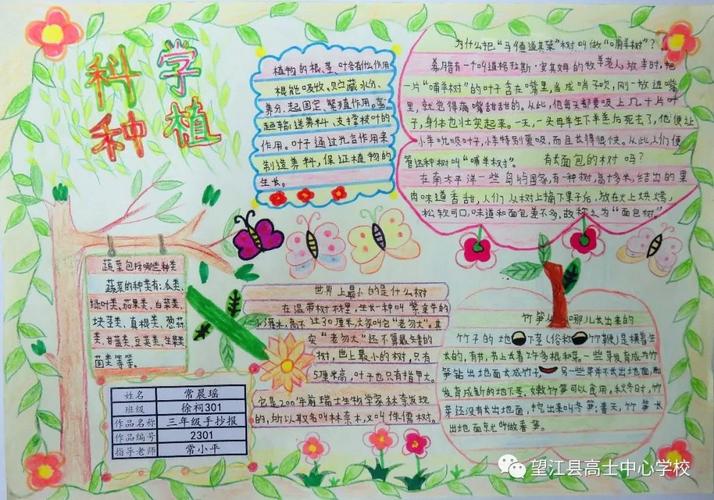 科学
种植
植物的根、茎、叶各有什么作用
根能吸收、贮藏水分、
养分、起固定、繁殖作用。茎
起输送养料、支撑枝叶的
作用。叶子通过光合作用来
制造养料，保证植物的
生长。
为什么把"马德道其菜"树叫做"喃羊树"？
希腊有一个叫道格拉斯·宾其姆的牧羊老人放羊时，把
一片"喃羊树"的叶子含在嘴里，当成哨子吹，刚一放进嘴
里，就觉得满嘴甜甜的。从此，他每天都要吸上几十片叶
子，身体也壮实起来。
管这种树叫"喃羊树"。
有长面包的树吗？
在南太平洋一些岛屿国家，有一种树，高十多米，结出的果
肉味道香甜，人们从树上摘下果子后，放在火上烘烤，
松软可口，味道和面包差不多，故称之为"面包树"。
蔬菜包括哪些种类
蔬菜的种类有：瓜类、
绿叶类、茄果类、白菜类、
块茎类、真根类、葱蒜
类、甘蓝类、豆荚类、
菌类等等。
世界上最小的是什么树
在温带树林里，生长一种叫
5厘米高，叶子也只有指甲大。
它是200年前瑞士生物学家林奈发现
的，所以取名叫林奈木，又叫侏儒树。
姓名 常晨瑶
班级 徐祠301
作品名称 三年级手抄报
作品编号 2301
指导老师 常小平
竹笋是从哪儿长出来的
竹子的地下茎（俗称竹鞭）是横着生
长的，有节，节上长着许多根和芽。一些芽发育成为竹
笋钻出地面长成竹子。另一些芽并不长出地面，而
发育成新的地下茎。嫩竹笋可以食用。秋冬时，竹
芽还没有长出地面，挖出来叫冬笋；春天，竹笋长
出地面就叫做春笋。
望江县高士中心学校